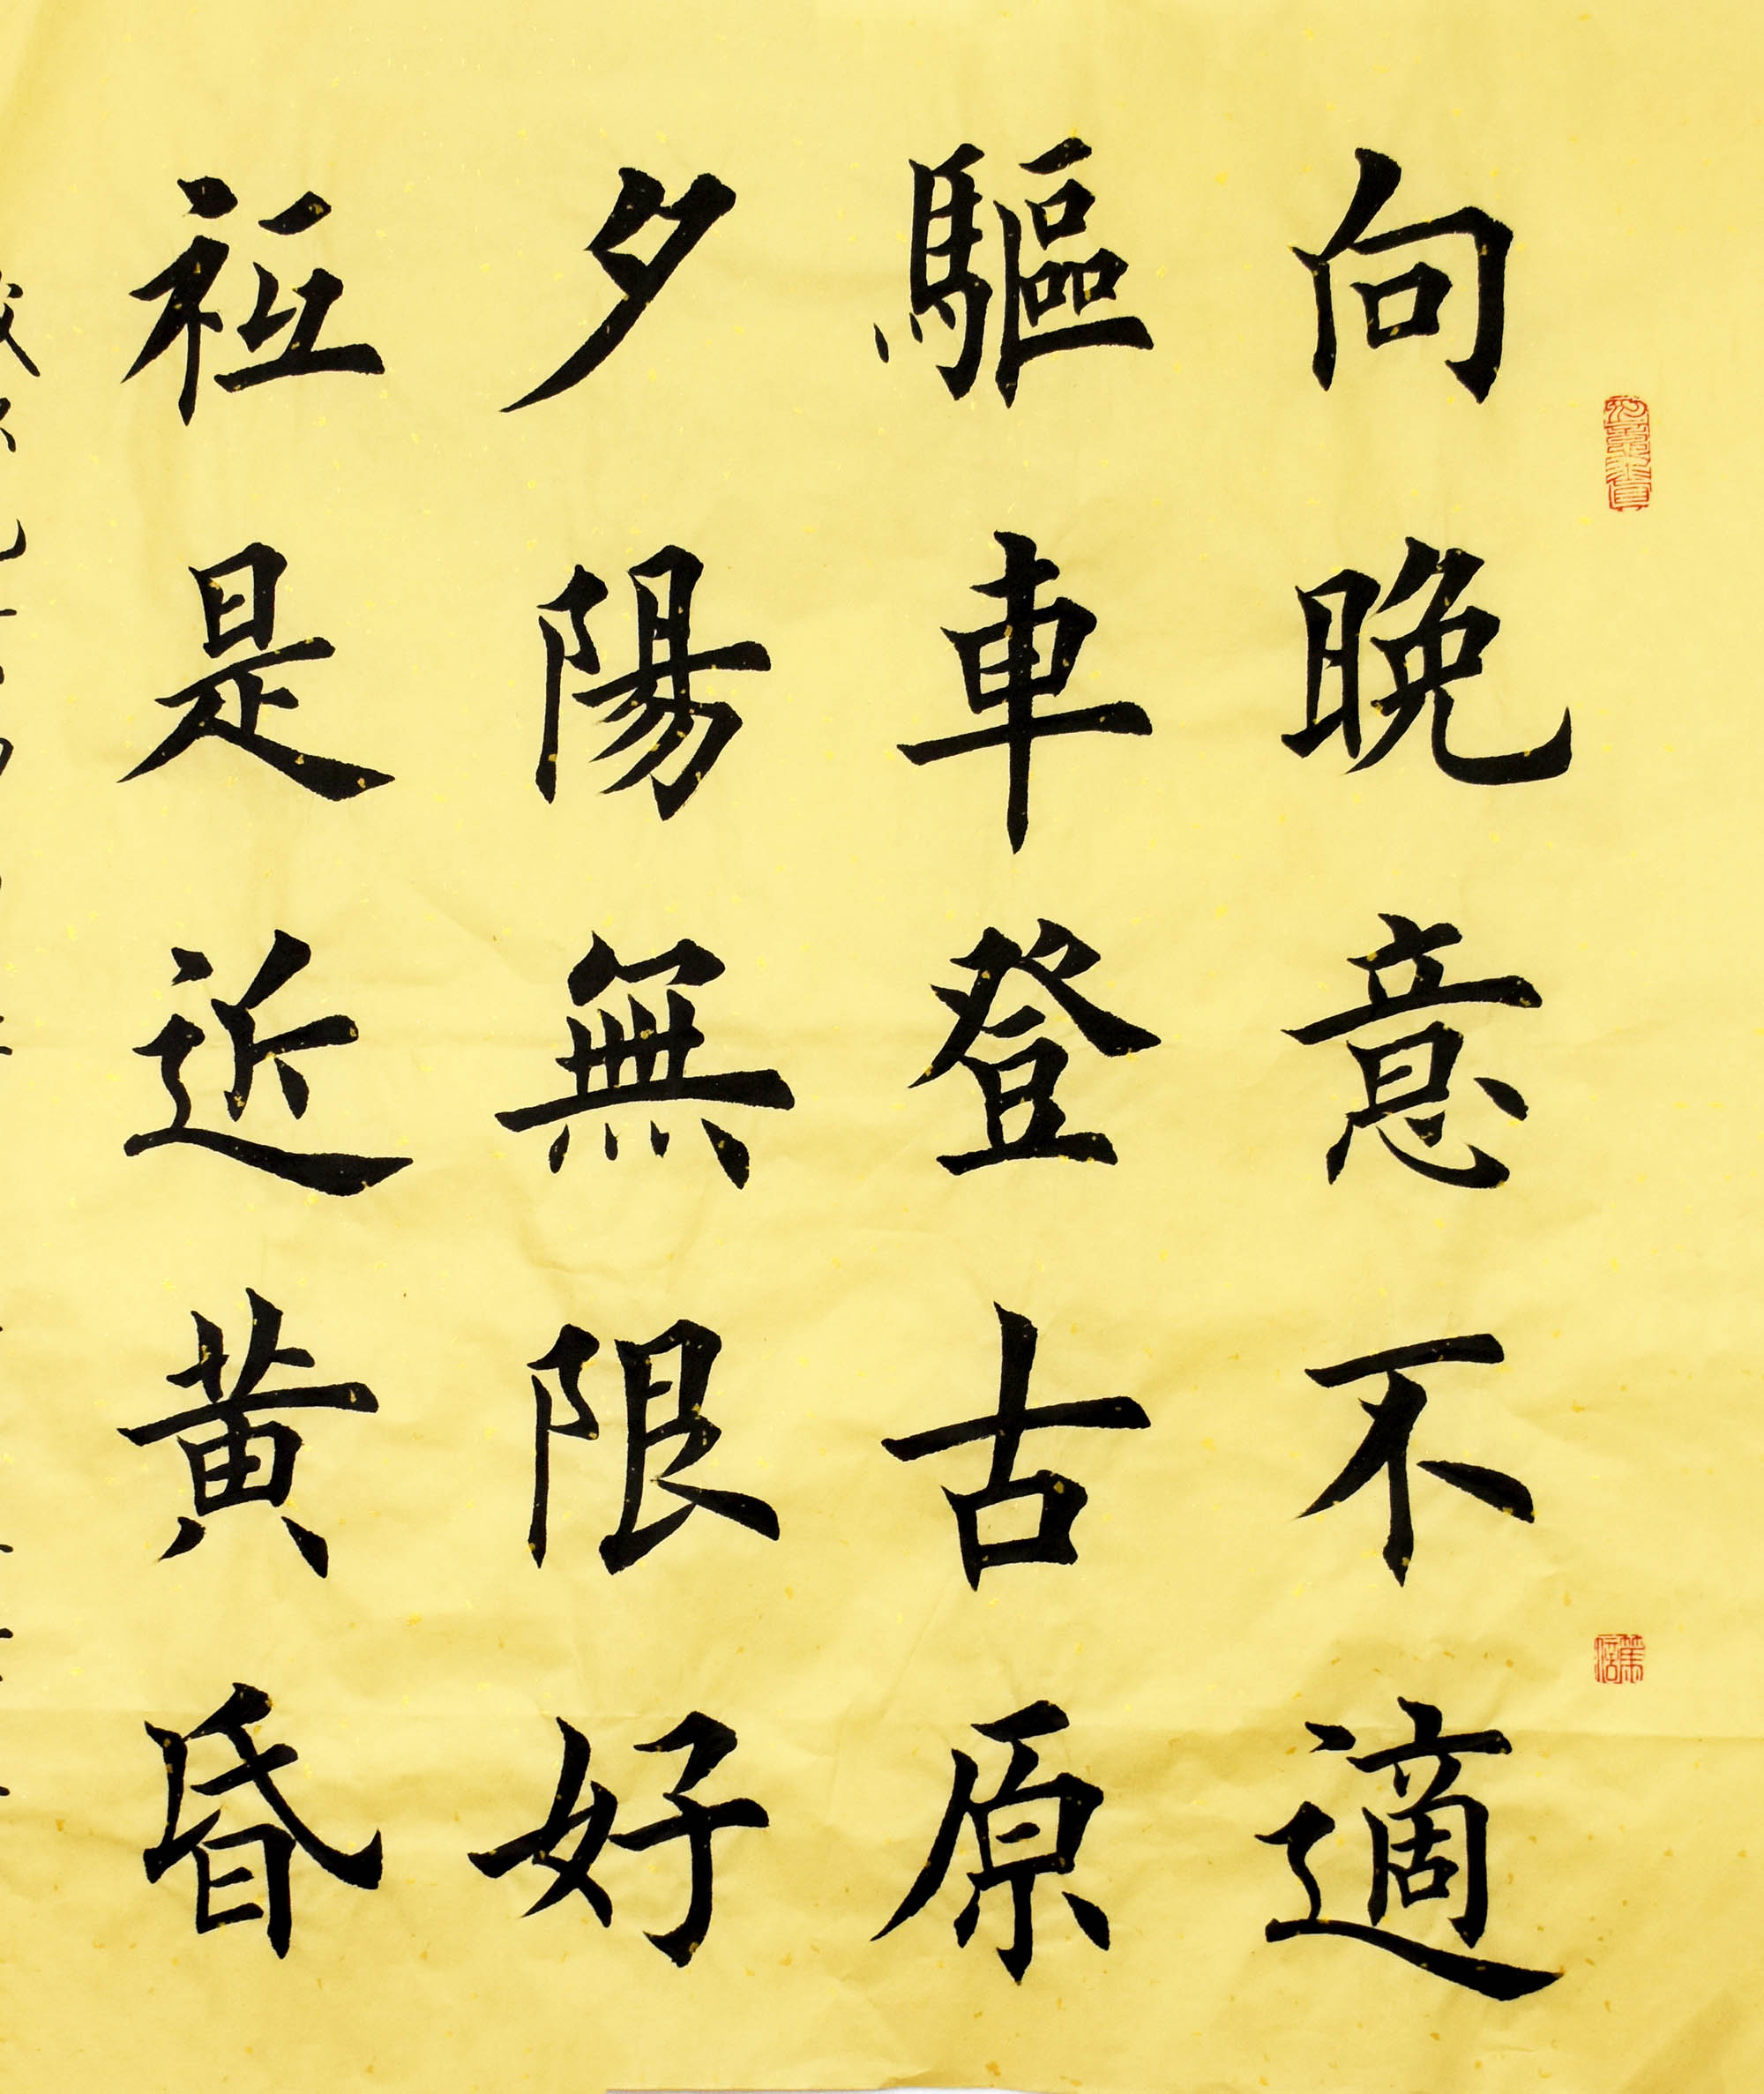 向晚意不適
驅車登古原
夕陽無限好
祗是近黄昏